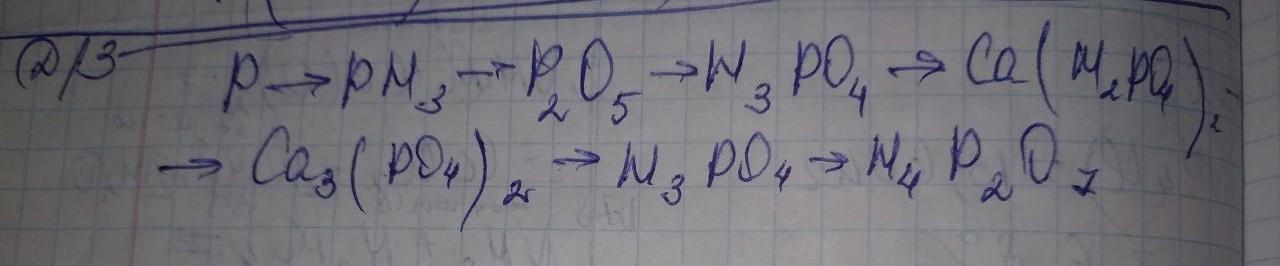 Д/З P → PH₃ → P₂O₅ → H₃PO₄ → Ca(H₂PO₄)₂
→ Ca₃(PO₄)₂ → H₃PO₄ → H₄P₂O₇